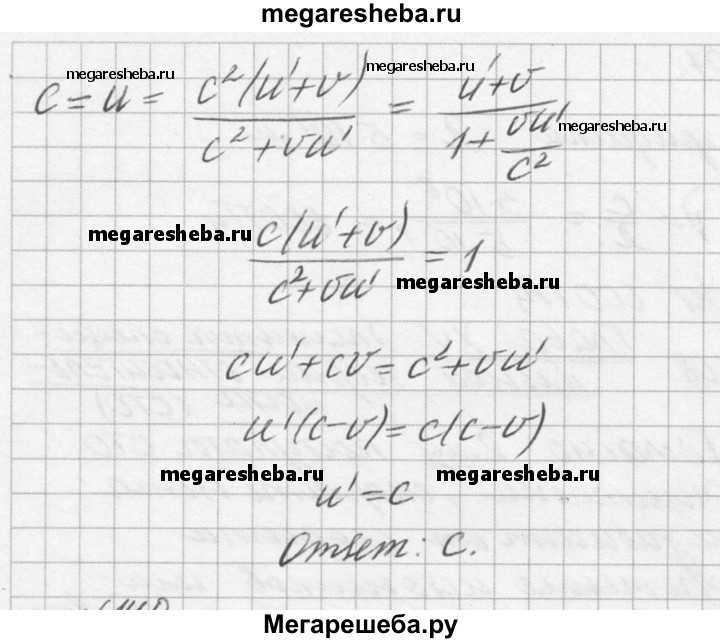 megaresheba.ru
megaresheba.ru megaresheba.ru
c = u = c²(u'+v) / c²+vu' = u'+v / 1+ vu'/c²
megaresheba.ru
megaresheba.ru
c(u'+v) / c²+vu' = 1
megaresheba.ru
cu'+cv=c²+vu'
u'(c-v)=c(c-v)
megaresheba.ru megaresheba.ru
u'=c
Ответ: c.
Мегарешеба.ру